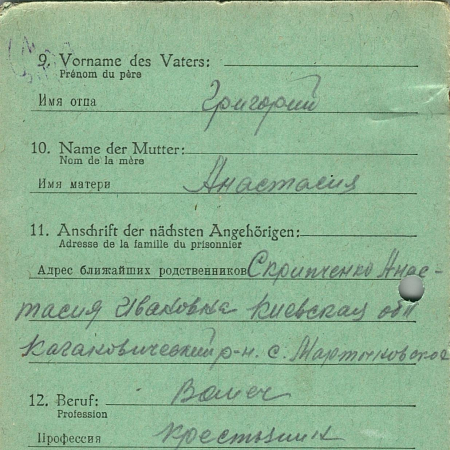 9. Vorname des Vaters:
Prénom du père
Имя отца Григорий
10. Name der Mutter:
Nom de la mère
Имя матери Анастасия
11. Anschrift der nächsten Angehörigen:
Adresse de la famille du prisonnier
Адрес ближайших родственников Скрипченко Анас-
тасия Ивановна Киевская обл
Кагановический р-н. с. Мартыновское
12. Beruf:
Profession
Профессия крестьянин